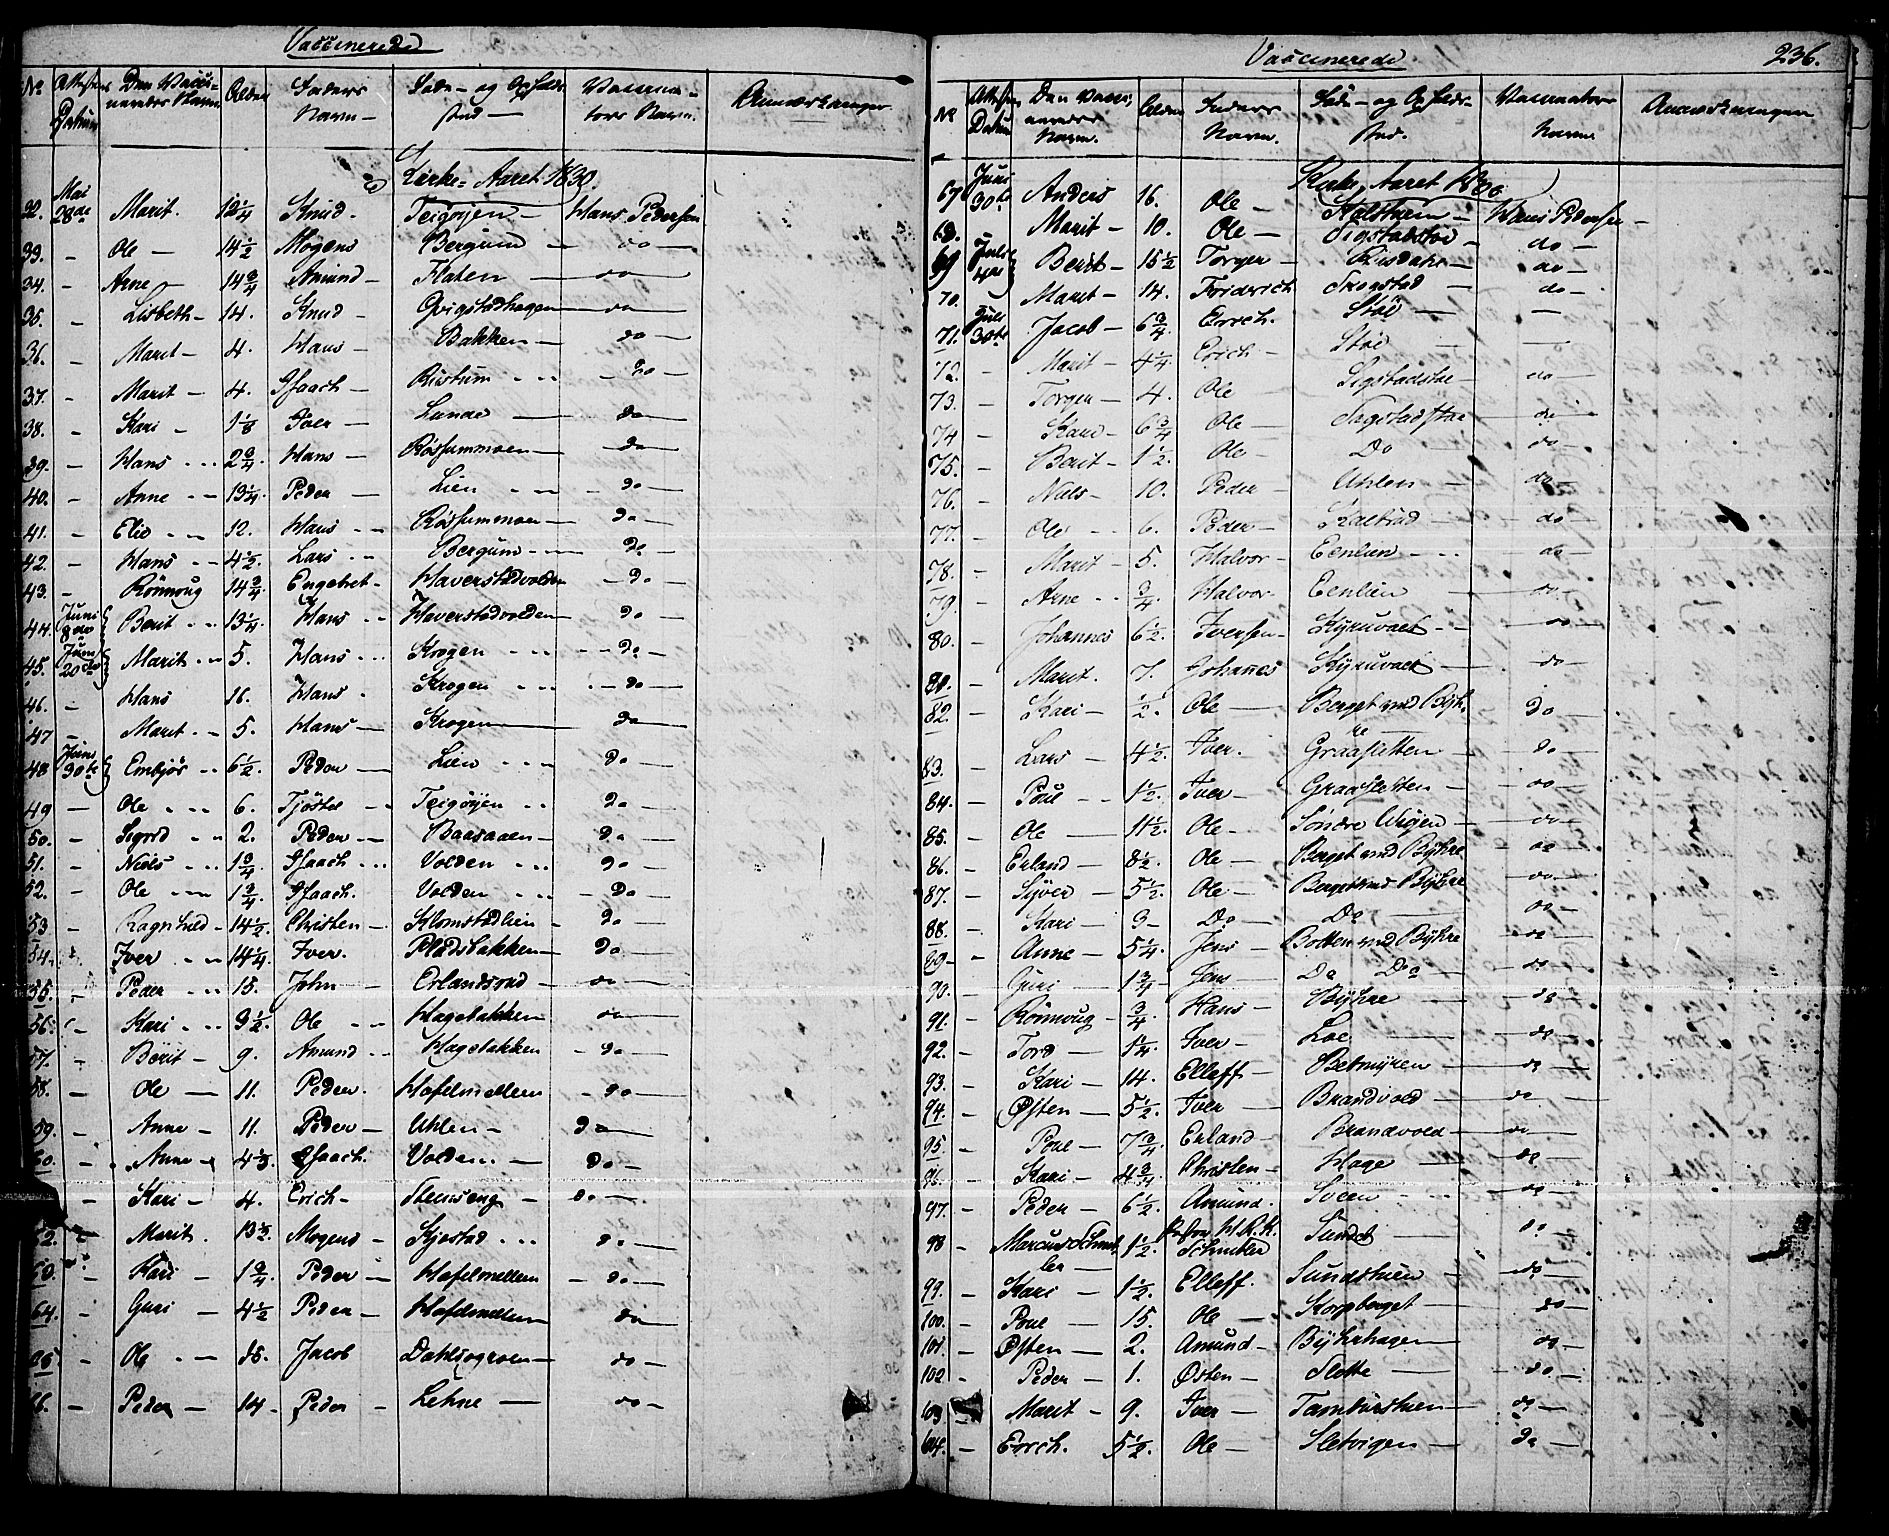 Vaccinerede
No | Attestens Datum | Den Vacci- neredes Navn | Alder | Faders Navn | Føde- og Opholds- sted | Vaccina- tors Navn | Anmærkninger
Kirke-Aaret 1830.
32. | Mai 28de | Marit. | 12 1/4 | Knud | Teigøyen | Hans Pedersen
33. | - | Ole | 14 1/2 | Mogens | Bergum | do
34. | - | Arne | 14 3/4 | Amund | Flaten | do
35. | - | Lisbeth | 14. | Knud | Qvigstadhagen | do
36. | - | Marit | 4. | Hans | Bakken | do
37. | - | Marit | 4. | Isaach | Rustum | do
38. | - | Kari | 1/8 | Iver | Lunde | do
39. | - | Hans | 2 3/4. | Hans | Røssummoen | do
40. | - | Anne | 13 1/4. | Peder | Lien | do
41. | - | Elie | 12. | Hans | Røssummoen | do
42. | - | Hans | 4 1/2. | Lars | Bergum | do
43. | - | Rønnoug | 14 3/4. | Engebret | Haverstadvolden | do
44. | Juni 8de | Berit | 13 1/4. | Hans | Haverstadvolden | do
45. | Juni 20de | Marit | 5. | Hans | Krogen | do
46. | - | Hans | 16. | Hans | Krogen | do
47 | - | Marit | 5. | Hans | Krogen | do
48 | Juni 30te | Embjør | 6 1/2. | Peder | Lien | do
49 | - | Ole | 6. | Tjøstel | Teigøyen | do
50. | - | Sigrid | 2. | Peder | Baasaaen | do
51. | - | Niels | 1 3/4. | Isaach | Volden | do
52. | - | Ole | 1 3/4. | Isaach | Volden | do
53 | - | Ragnhild | 14 1/2. | Christen | Klomstadlien | do
54. | - | Iver | 14 1/4. | Iver. | Pladsbakken | do
55. | - | Peder | 15. | John | Erlandsrud | do
56. | - | Kari | 3 1/2. | Ole | Hagebakken | do
57. | - | Berit | 9. | Amund | Hagebakken | do
58. | - | Ole | 11. | Peder. | Hafelmellem | do
59. | - | Anne | 11. | Peder | Uhlen | do
60. | - | Anne | | Isaach. | Volden | do
- | Kari | 4. | Erich | Stenseng | do
62. | - | Marit. | 13 1/2. | Mogens | Kjøstad | do
63. | - | Kari | 1 3/4. | Peder | Hafelmellem | do
64. | - | Guri | 4 1/2 | Peder | Hafelmellem | do
65 | - | Ole | | Jacob | Dahlsogroen | do
66. | - | Peder | 14. | Peder | Lehne | do
Vaccinerede.
236.
No | Attestens Datum | Den Vacci- neredes Navn. | Alder | Faders Navn. | Føde- og Opholds- sted. | Vaccinators Navn | Anmærkninger
Kirke-Aaret 1830
67 | Juni 30te | Anders | 16. | Ole | Kalstuen | Hans Pedersen
68. | Marit | 10. | Ole | Sigstadstøe | do
69 | Juli 4de | Berit | 15 1/2 | Torger | Risdahl | do
70. | Marit | 14. | Friderich | Skogstad | do
71. | Juli 30te | Jacob | 6 3/4. | Erich. | Støe | -
72. | - | Marit | 4 1/4 | Erich | Støe | -
73. | - | Torger | 4. | Ole | Sigstadstøe | do
74 | - | Kari | 6 3/4 | Ole | Sigstadstøe | do
75. | - | Berit | 1 1/2. | Ole | Do | do
76. | - | Niels | 10. | Peder | Uhlen | do
77. | - | Ole | 6. | Peder | Kalrud | do
78. | - | Marit | 5. | Halvor | Eenlien | do
79. | - | Arne | 3/4. | Halvor | Eenlien | do
80. | - | Johannes | 6 1/2. | Iversen | Kyruvaet | do
81. | - | Marit. | 7. | Johanes | Kyruvaet | do
82. | - | Kari | 1/2. | Ole | Berget ved Bÿh- re | do
83. | - | Lars | 4 1/2 | Iver. | Graasletten | do
84. | - | Poul | 1 1/2. | Iver | Graasletten | do
85. | - | Ole | 11 1/2. | Ole | Søndre Wigen | do
86. | - | Erland | 8 1/2. | Ole | Berget ved Bÿhre | do
87. | - | Syver | 5 1/2 | Ole | Berget ved Bÿhre | do
88. | - | Kari | 3 | Do | Do | do
89. | - | Anne | 5 1/4. | Jens | Botten ved Bÿhre | do
90. | - | Guri | 1 3/4 | Jens | Do Do | do
91. | - | Rønnoug | 3/4. | Hans | Bÿhre | do
92. | - | Tord | 1 1/4. | Iver | Loe | do
93. | - | Kari | 14. | Elleff | Bekmyren | do
94. | - | Østen | 5 1/2. | Iver | Brandvold | do
95. | - | Poul | 7 3/4. | Erland | Brandvold | do
96. | - | Kari | 4 3/4. | Christen | Hage | do
97. | - | Peder | 6 1/2. | Amund. | Sveen | do
98 | - | Marcus Schnit- ler | 1 1/2. | H. R. K. Schnitler | Sundet | do
99. | - | Kari | 1 1/2. | Elleff. | Sundstuen | do
100. | - | Poul | 15. | Ole | Korpberget | do
101. | - | Østen | 2. | Amund | Bÿhrehagen | do
102 | - | Peder | 1. | Østen | Slette | do
103 | - | Marit | 9. | Iver | Tamburstuen | do
104. | - | Erich. | 5 1/2. | Ole | Sletvigen | do